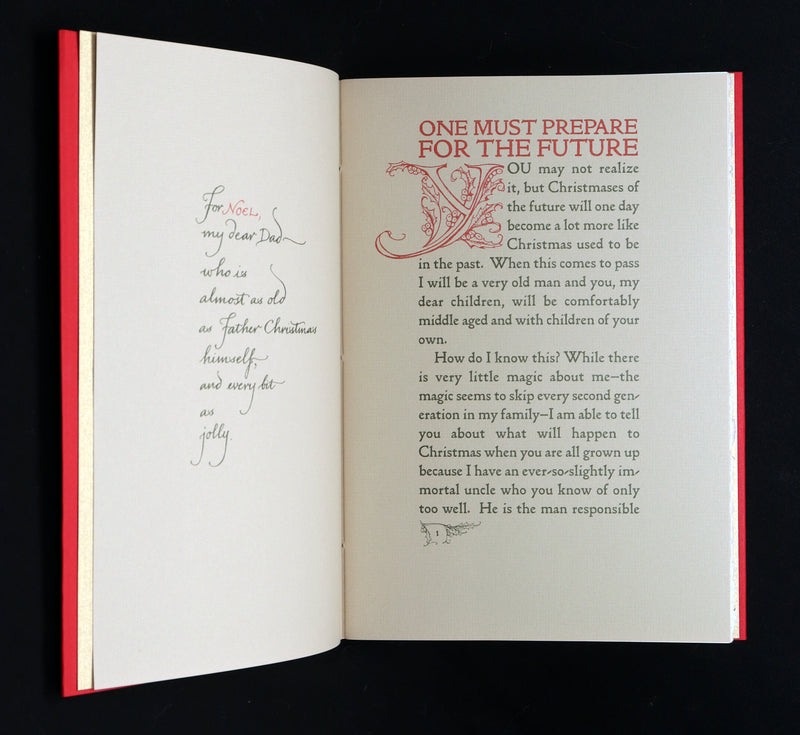 For NOEL,
my dear Dad
who is
almost as old
as Father Christmas
himself,
and every bit
as
jolly.
ONE MUST PREPARE
FOR THE FUTURE
YOU may not realize
it, but Christmases of
the future will one day
become a lot more like
Christmas used to be
in the past. When this comes to pass
I will be a very old man and you, my
dear children, will be comfortably
middle aged and with children of your
own.
How do I know this? While there
is very little magic about me—the
magic seems to skip every second gen-
eration in my family—I am able to tell
you about what will happen to
Christmas when you are all grown up
because I have an ever-so-slightly im-
mortal uncle who you know of only
too well. He is the man responsible
1